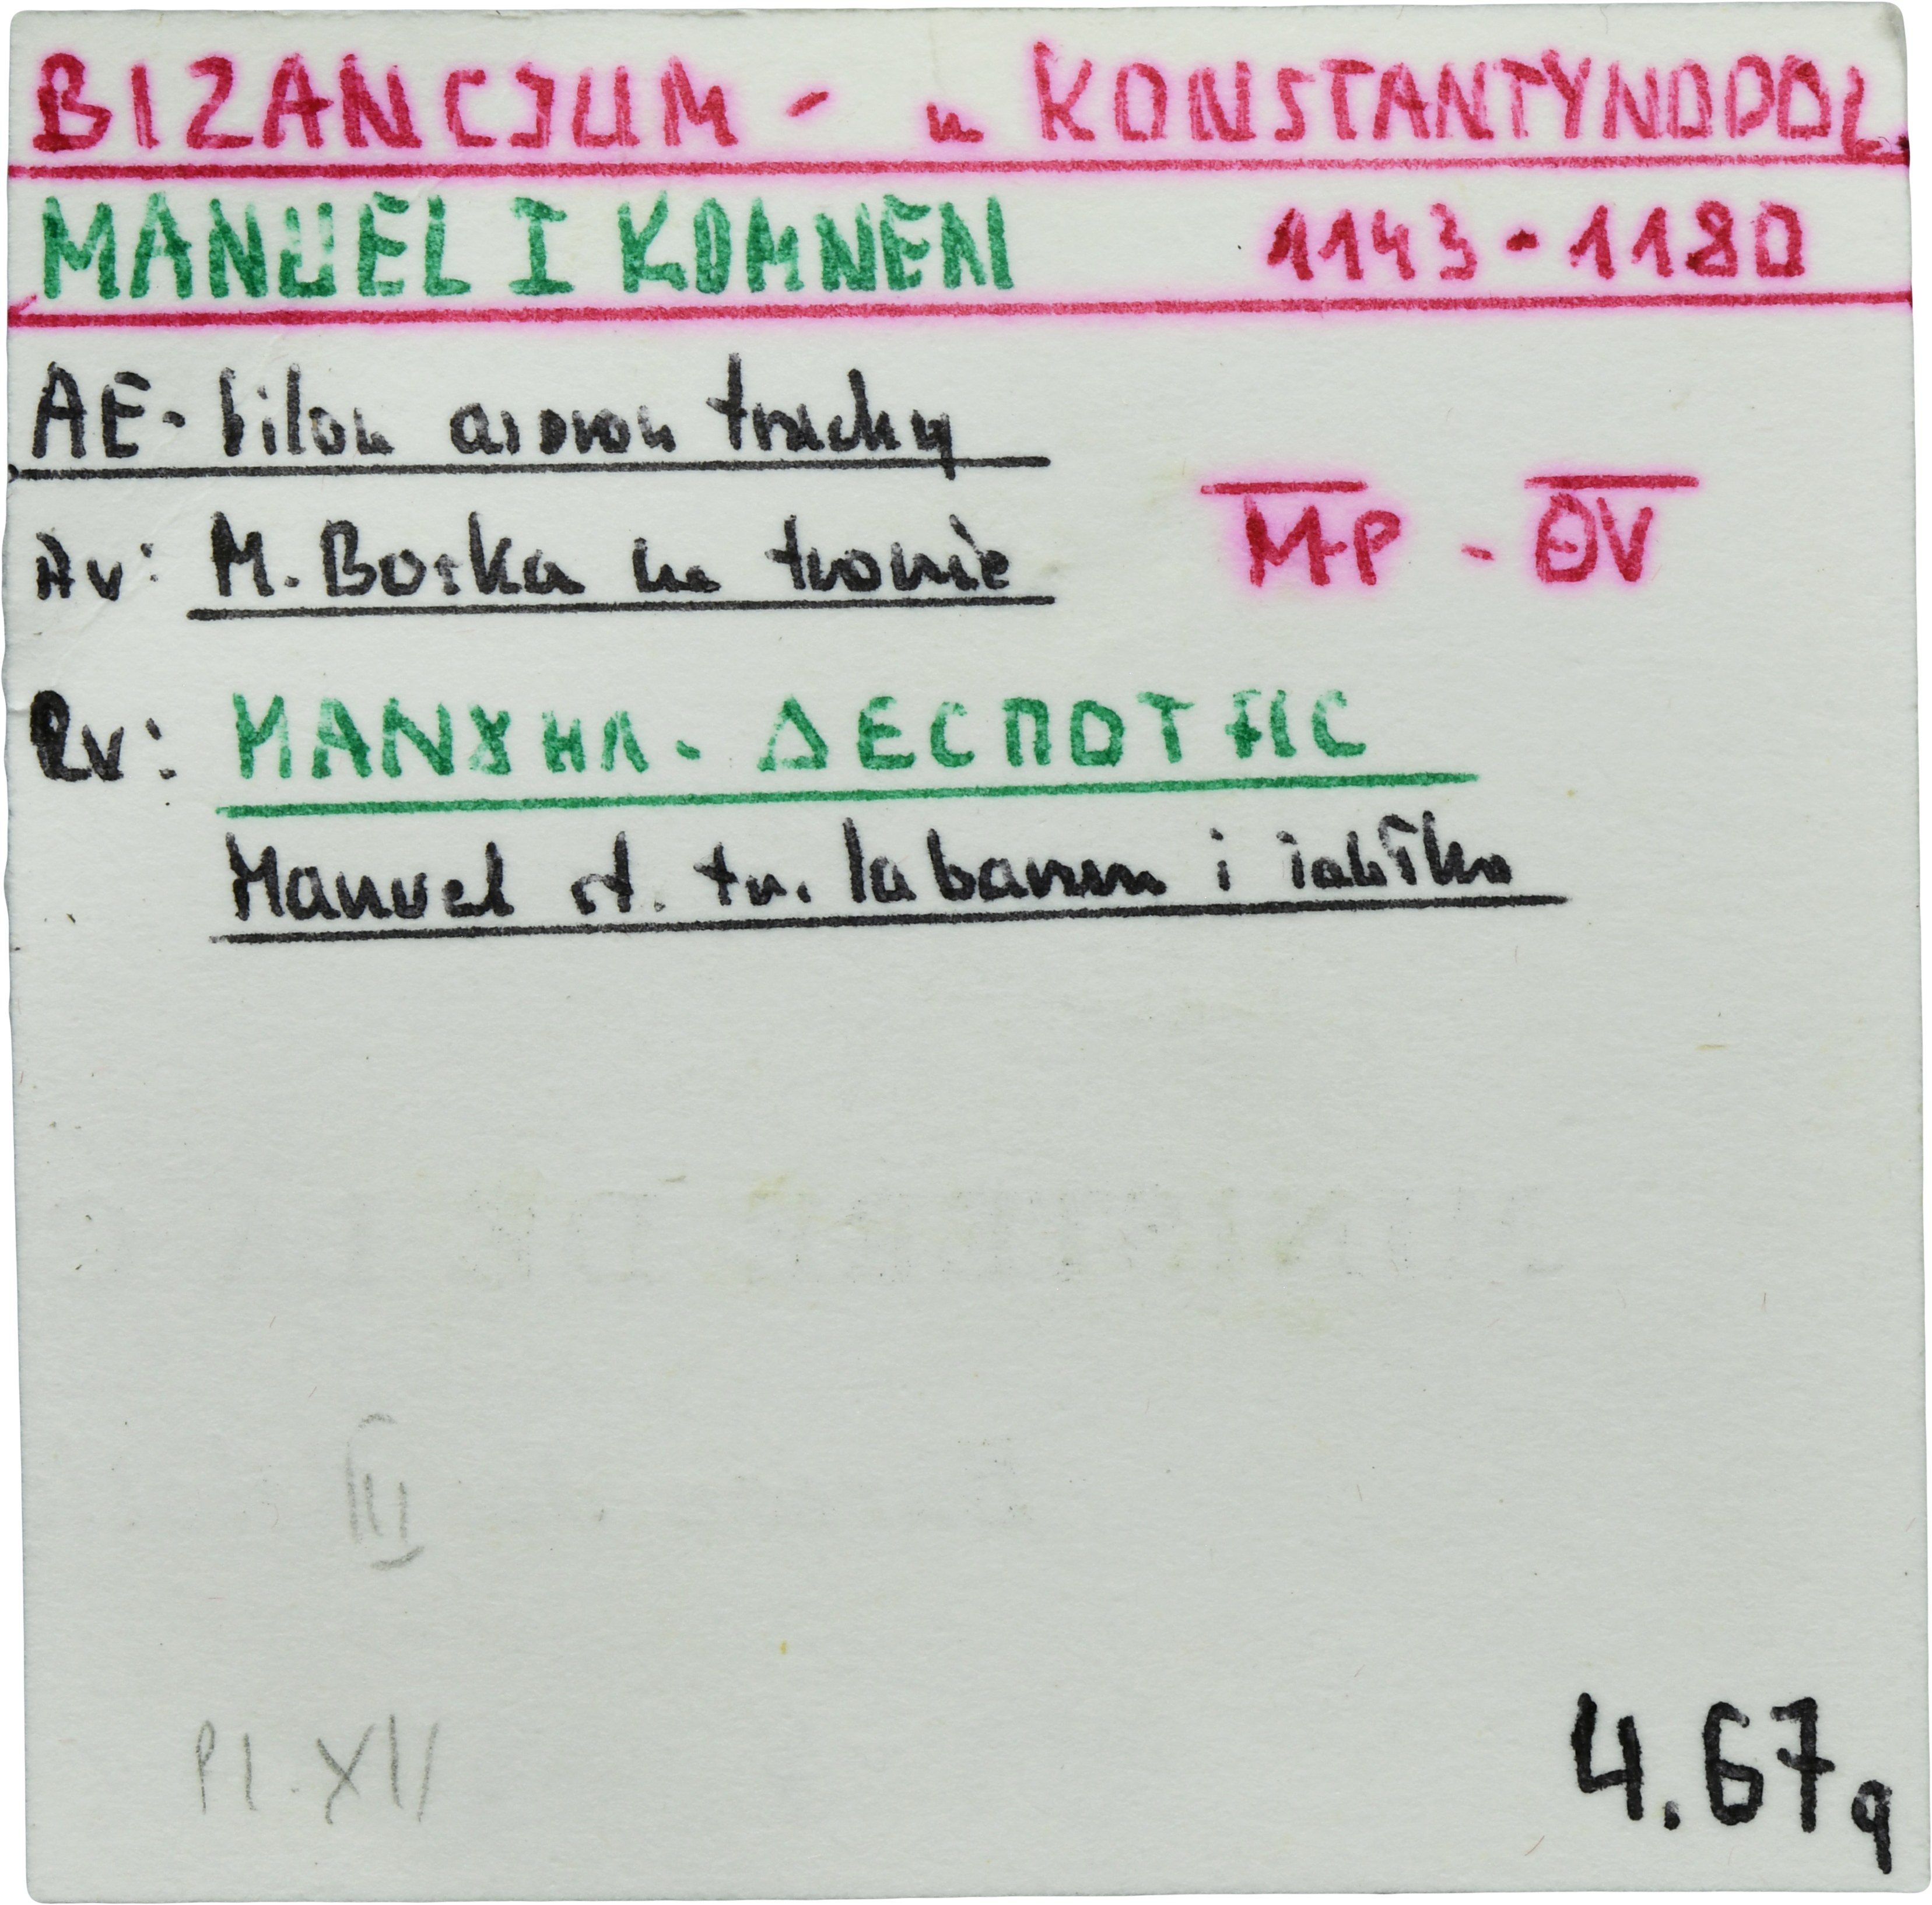 BIZANCJUM - m KONSTANTYNOPOL
MANUEL I KOMNEN 1143-1180
AE- bilon aspron trachy
Av: M. Boska na tronie M-P - ΘV
Rv: ΜΑΝȣΗΛ - ΔΕСΠΟΤΗС
Manuel st. tr. labarum i jabłko
III
Pl. XII
4.67g